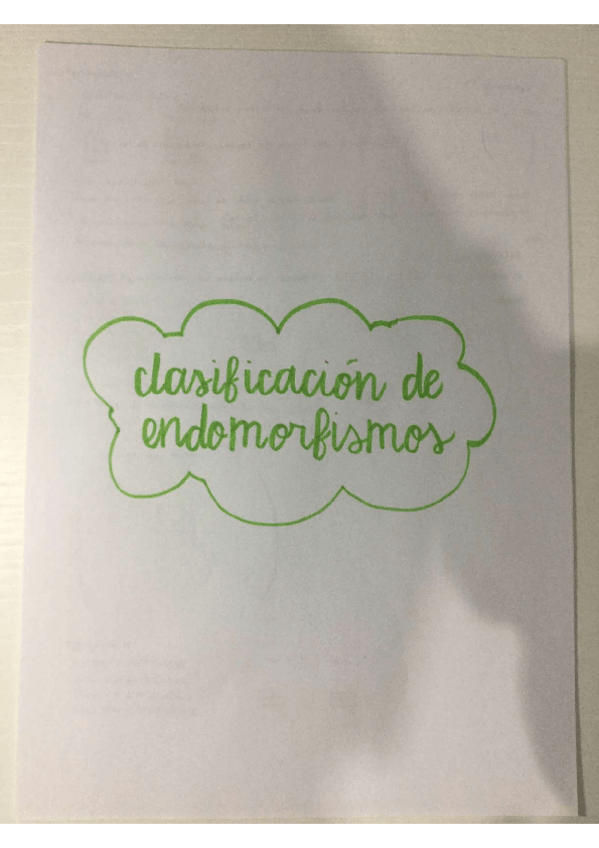 clasificación de
endomorfismos